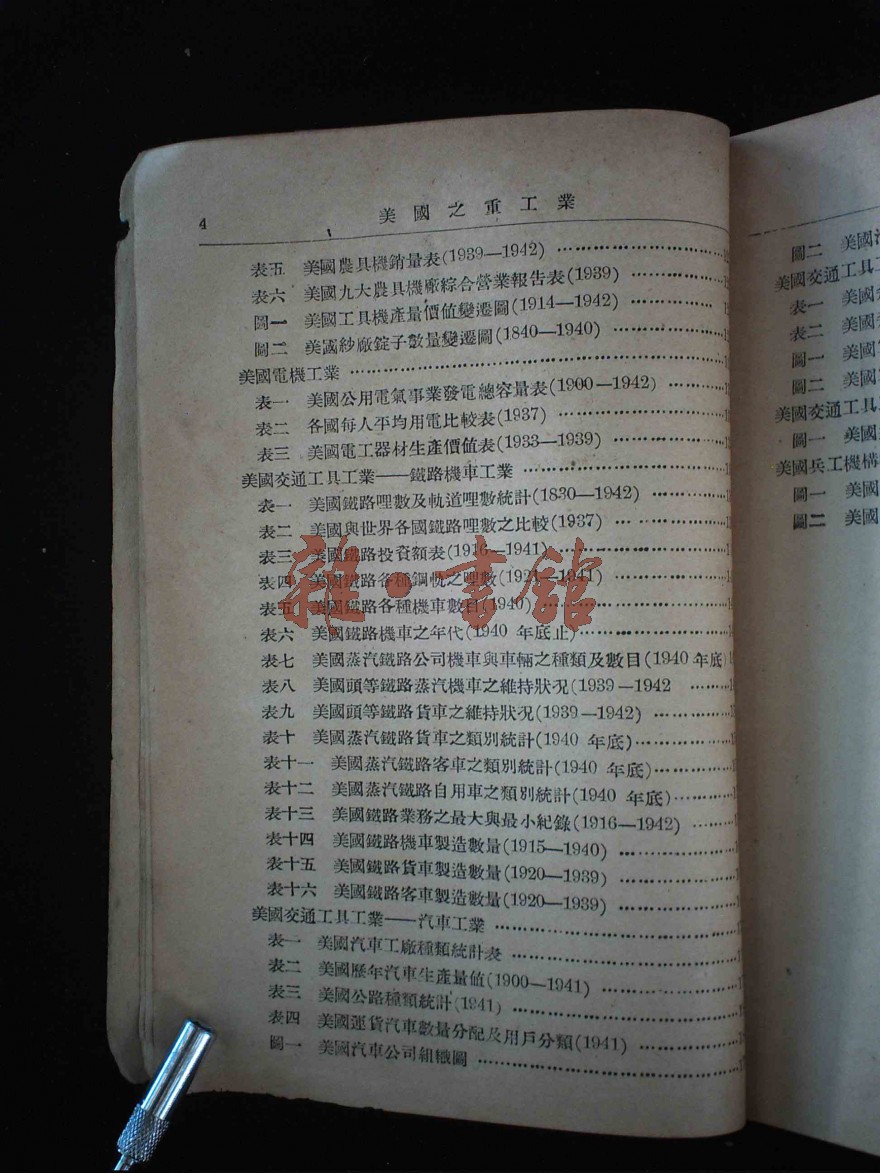 4
美國之重工業
表五 美國農具機銷量表(1939—1942)
表六 美國九大農具機廠綜合營業報告表(1939)
圖一 美國工具機產量價值變遷圖(1914—1942)
圖二 美國紗廠錠子數量變遷圖(1840—1940)
美國電機工業
表一 美國公用電氣事業發電總容量表(1900—1942)
表二 各國每人平均用電比較表(1937)
表三 美國電工器材生產價值表(1933—1939)
美國交通工具工業——鐵路機車工業
表一 美國鐵路哩數及軌道哩數統計(1830—1942)
表二 美國與世界各國鐵路哩數之比較(1937)
表三 美國鐵路投資額表(1916—1941)
表四 美國鐵路各種鋼軌之哩數(1921—1941)
表五 美國鐵路各種機車數目(1940)
表六 美國鐵路機車之年代(1940 年底止)
表七 美國蒸汽鐵路公司機車與車輛之種類及數目(1940 年底)
表八 美國頭等鐵路蒸汽機車之維持狀况(1939—1942
表九 美國頭等鐵路貨車之維持狀况(1939—1942)
表十 美國蒸汽鐵路貨車之類別統計(1940 年底)
表十一 美國蒸汽鐵路客車之類別統計(1940 年底)
表十二 美國蒸汽鐵路自用車之類別統計(1940 年底)
表十三 美國鐵路業務之最大與最小紀錄(1916—1942)
表十四 美國鐵路機車製造數量(1915—1940)
表十五 美國鐵路貨車製造數量(1920—1939)
表十六 美國鐵路客車製造數量(1920—1939)
美國交通工具工業——汽車工業
表一 美國汽車工廠種類統計表
表二 美國歷年汽車生產量值(1900—1941)
表三 美國公路種類統計(1941)
表四 美國運貨汽車數量分配及用戶分類(1941)
圖一 美國汽車公司組織圖
雜·書館
圖二 美國
美國交通工具工
表一 美國
表二 美國
圖一 美國
圖二 美國
美國交通工具
圖一 美國
美國兵工機構
圖一 美國
圖二 美國